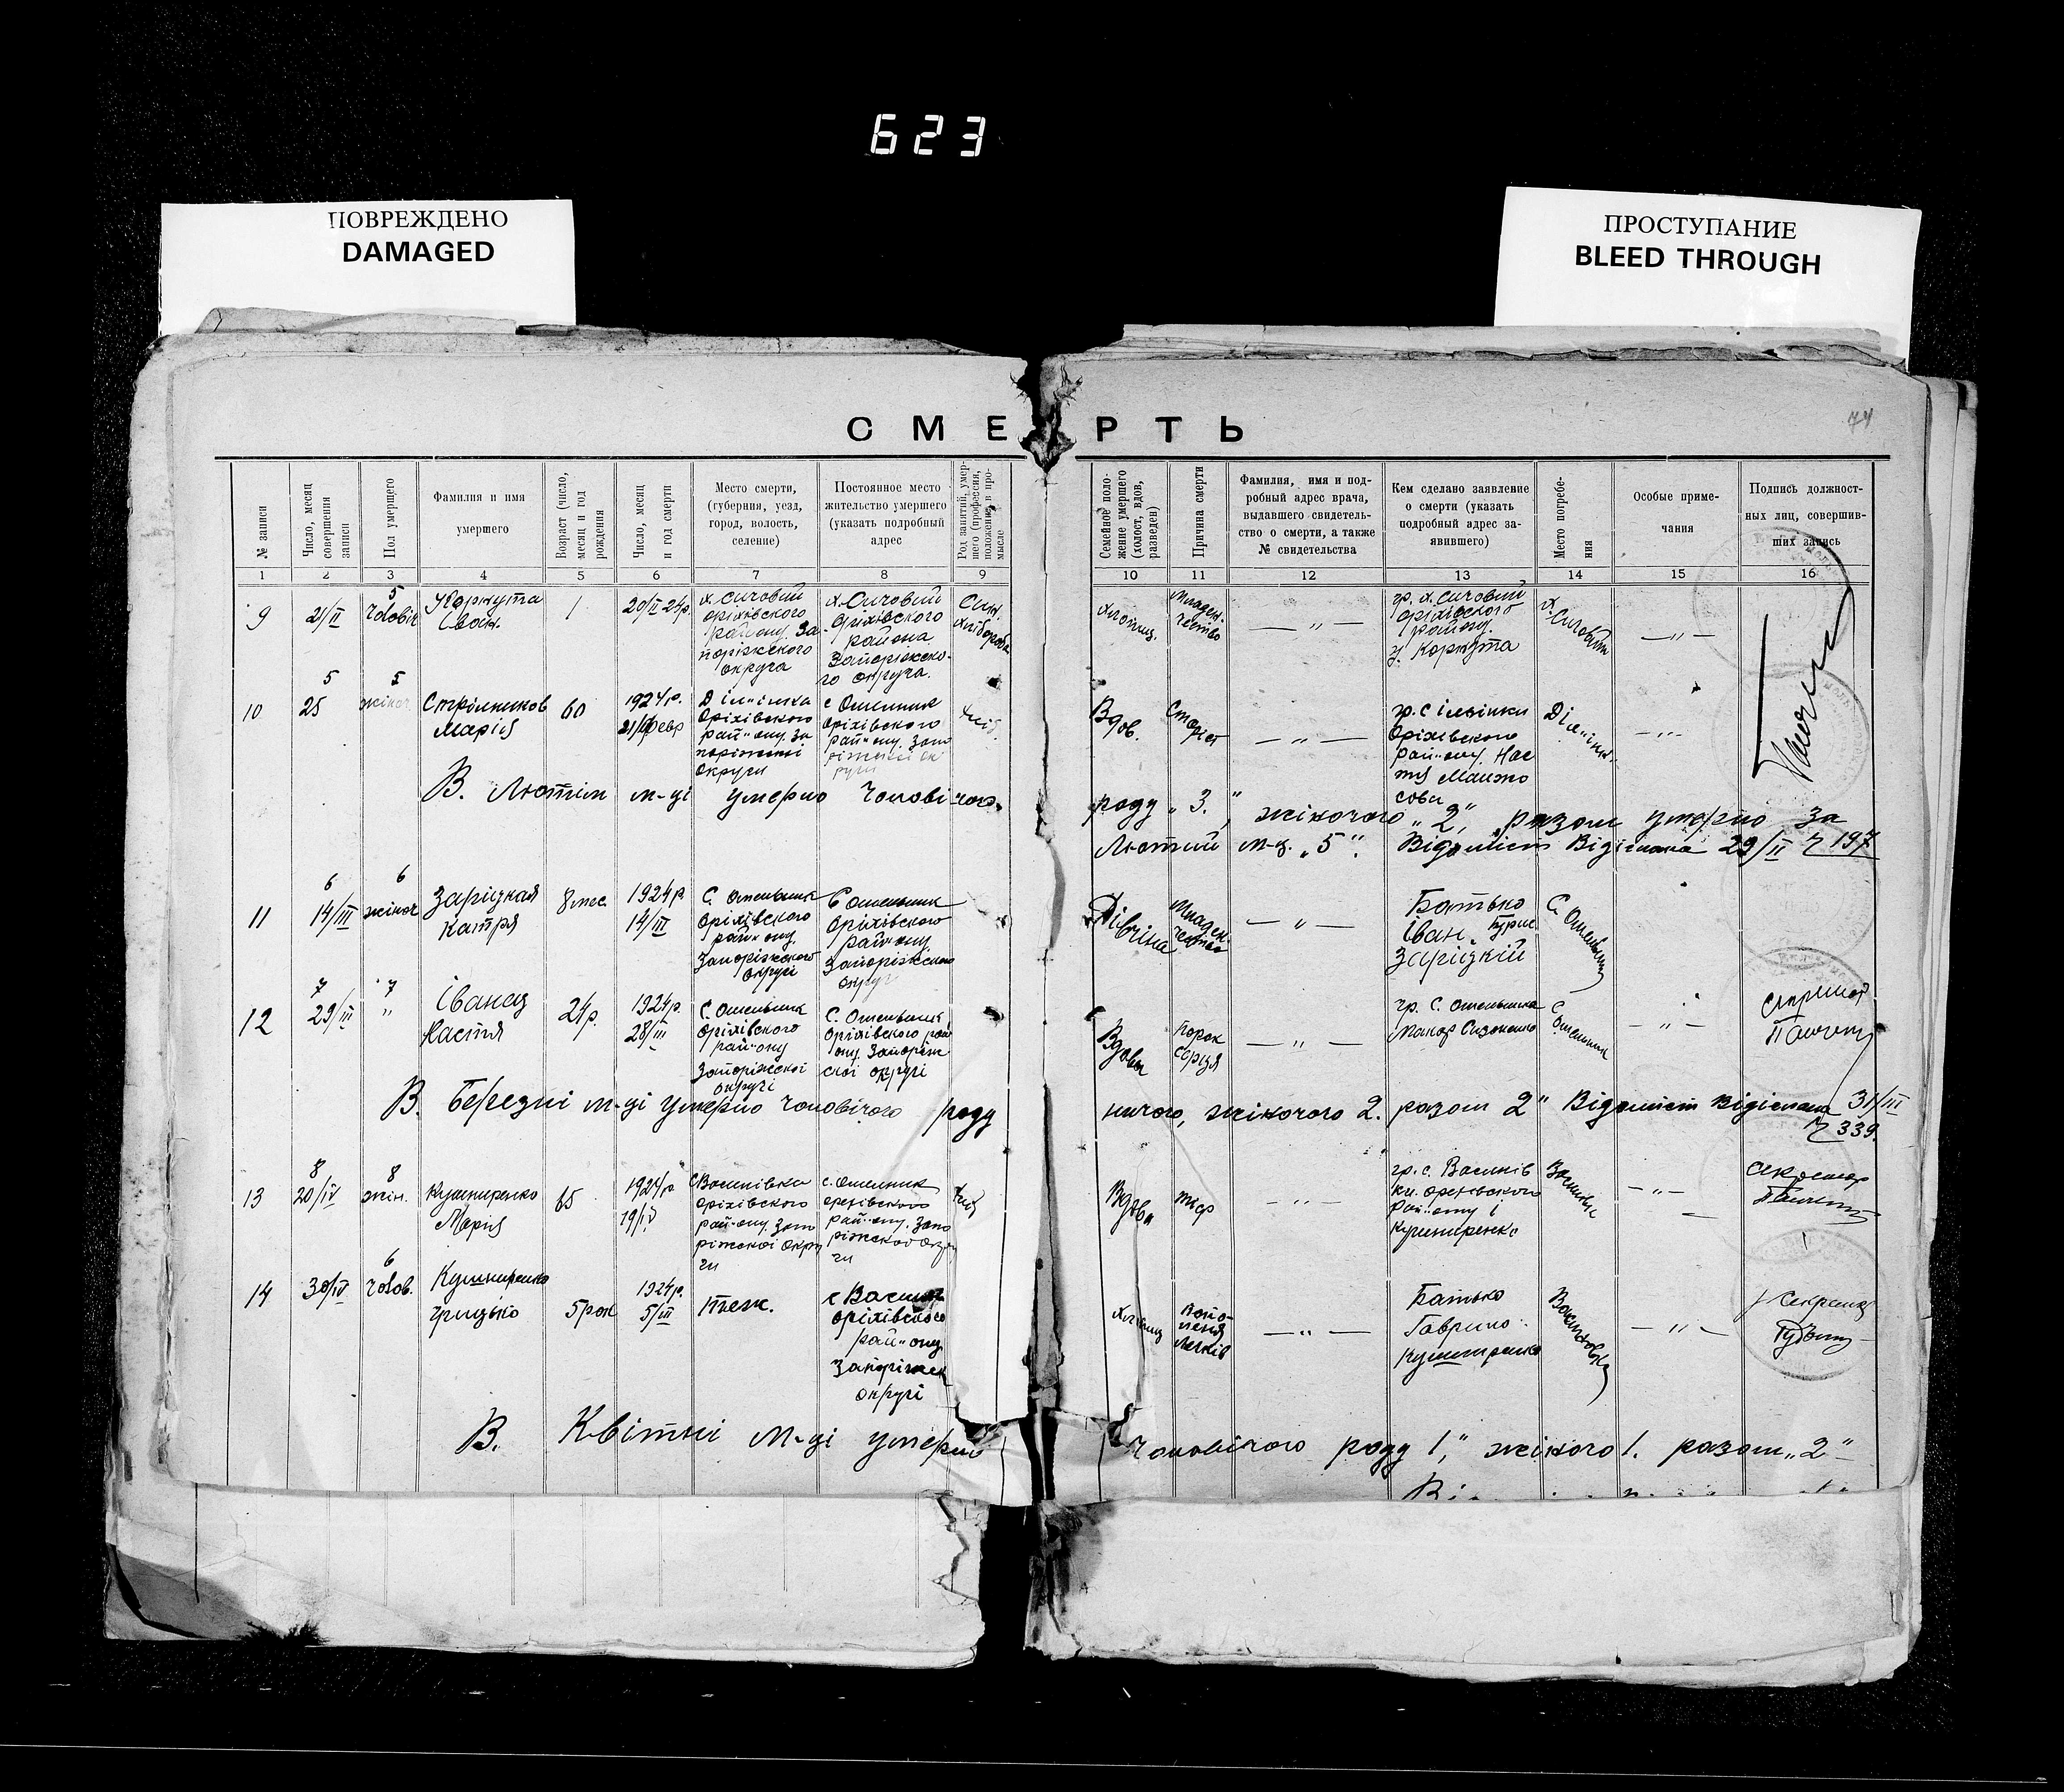 623
ПОВРЕЖДЕНО
DAMAGED
ПРОСТУПАНИЕ
BLEED THROUGH
74
СМЕРТЬ
№ записи
Число, месяц совершения записи
Пол умершего
Фамилия и имя умершего
Возраст (число, месяц и год рождения
Число, месяц и год смерти
Место смерти, (губерния, уезд, город, волость, селение)
Постоянное место жительство умершего (указать подробный адрес
Род занятий, умершего (профессия, положение в промысле
Семейное положение умершего (холост, вдов, разведен)
Причина смерти
Фамилия, имя и подробный адрес врача, выдавшего свидетельство о смерти, а также № свидетельства
Кем сделано заявление о смерти (указать подробный адрес заявившего)
Место погребения
Особые примечания
Подпись должностных лиц, совершивших запись
1 2 3 4 5 6 7 8 9 10 11 12 13 14 15 16
9 21/II 5 чоловіч Коркута Іван 1 20/II 24р. х. Сичовий Оріхівского району. Запоріжского округа х. Сичовий Оріхівского района Запоріжского округа. Син хлібороба
хлопец. младенчество — „ — гр. х. Сичовий Оріхівского району. Коркута х. Сичовий — „ —
10 5 25 5 жіноч Стрілников Марія 60 1924р. 21/февр Оріхівского рай"ону. Запоріжскої округи с Омельник Оріхівского рай"ону. Хліб.
Вдов. Старіст — „ — гр. с Оріхівского рай"ону. — „ —
В. Лютім м-ці умерло чоловічого роду „3.“, жіночого „2“, разом умерло за
Лютий м-ц. „5“. Відомість Відіслана 29/II 197
11 6 14/III 6 жіноч Заріцкая Катря 8 мес 1924р 14/III С. Омельник Оріхівского рай"ону. Запоріжского округі С Омельник Оріхівского рай"ону. Запоріжского округ
Дівчина Младенчество — „ — Батько Іван Заріцкій С. Омельник
12 7 29/III 7 „ Іванец Настя 24р. 1924р. 28/III С. Омельник Оріхівского рай"ону Запоріжскої округі С. Омельник Оріхівского району Запоріжскої округі
Вдова Порок сердця — „ — гр. С. Омельника Макар С. Омельник — „ — Секретар
В. Березні м-ці умерло чоловічого роду ничого, жіночого 2. разом 2“ Відомість Відіслана 31/III
339.
13 8 20/IV 8 жін. Кушниренко Марія 65 1924р 19/IV с Василівка Оріхівского рай"ону. Запоріжскої Округи с. Омелник Оріхівского рай"ону. Запоріжскої Округи Хліб
Вдова тиф — „ — гр. с. Васинівки рай"ону Кушниренко — „ — Секретар
14 30/IV 6 чолов. Кушниренко Грицько 5 рок 1924р. 5/III Теж. Оріхівского рай"ону Запоріжск округі
хлопец легків — „ — Батько Гаврило Кушниренко — „ — Секретар
В. Квітні м-ці умерло чоловічого роду 1,“ жіного 1. разом „2“